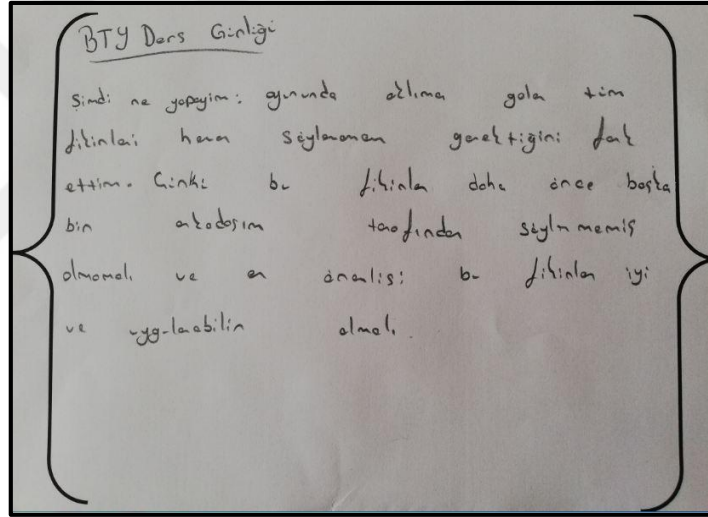 BTY Ders Günlüğü
Şimdi ne yapayım: oyununda aklıma gelen tüm
fikirleri hemen söylememem gerektiğini fark
ettim. Çünkü bu fikirler daha önce başka
bir arkadaşım tarafından söylenmemiş
olmamalı ve en önemlisi bu fikirler iyi
ve uygulanabilir olmalı.